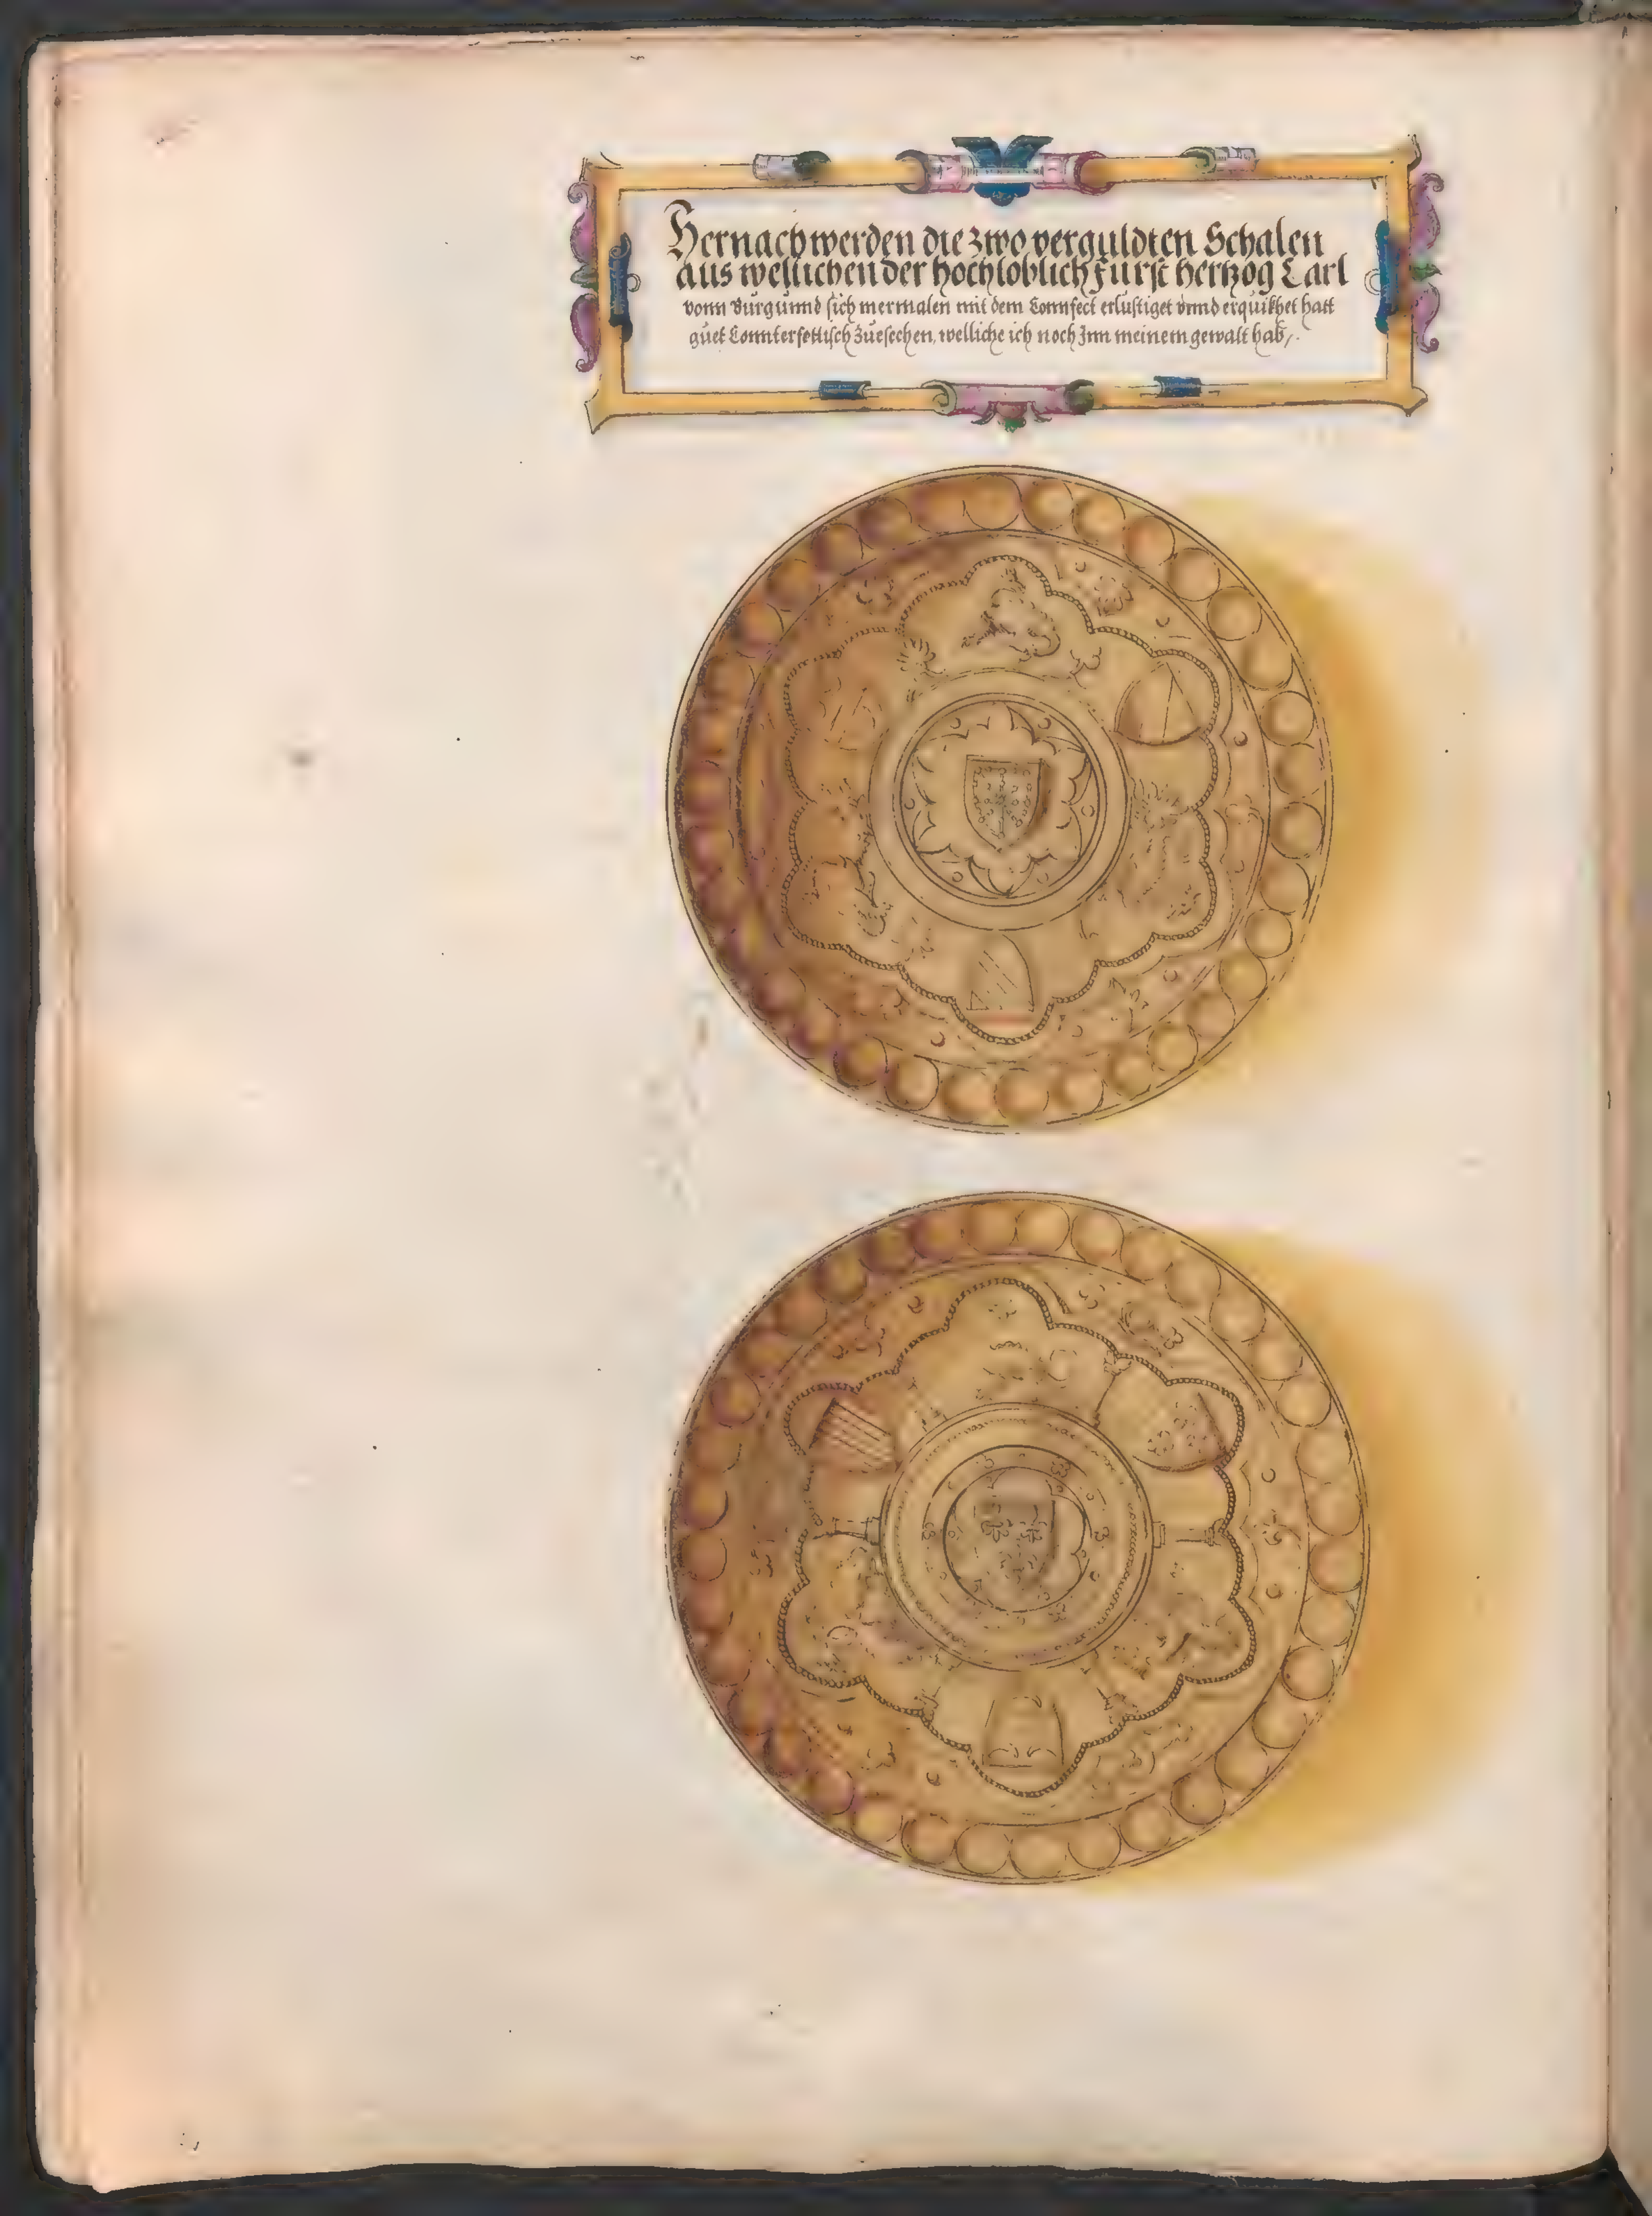 Hernach werden die zwo verguldten Schalen
aus wellichen der hochloblich Furst hertzog Carl
vonn Burgunnd sich mermalen mit dem Connfect erlustiget vnnd erquikhet hatt
guet Connterfettisch zuesechen, welliche ich noch Inn meinem gewalt hab,.